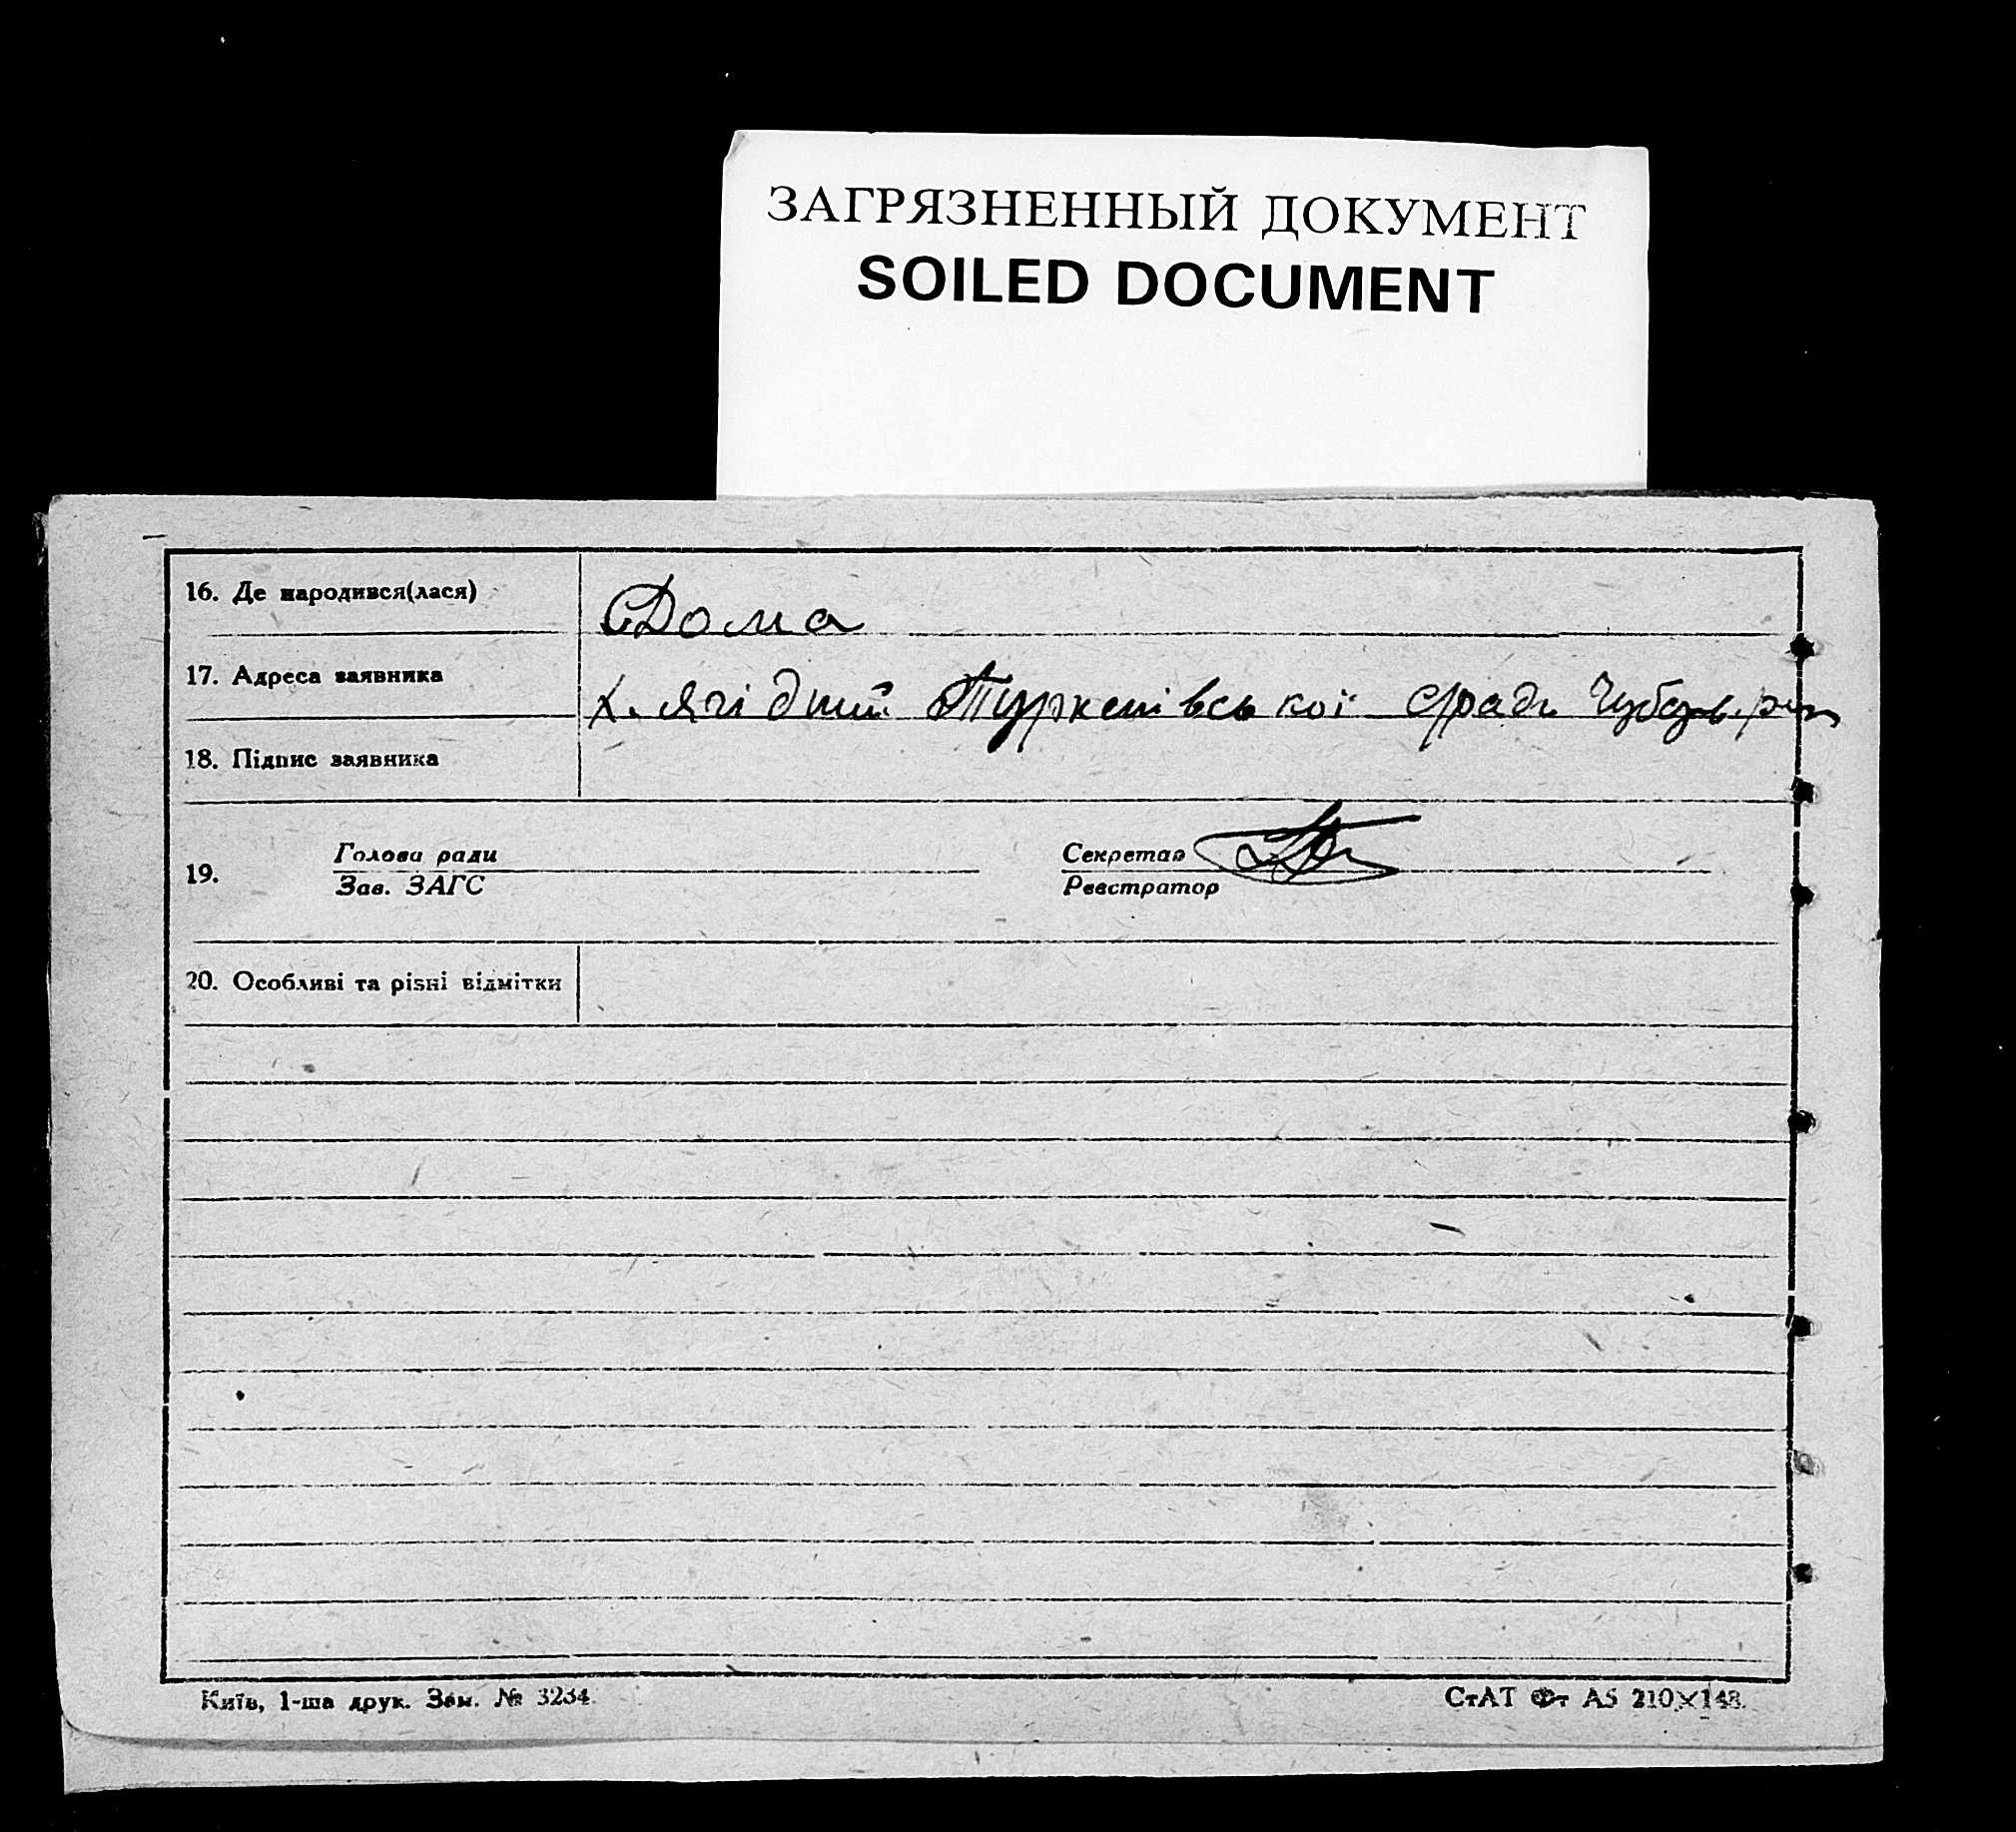 ЗАГРЯЗНЕННЫЙ ДОКУМЕНТ
SOILED DOCUMENT
16. Де народився(лася)
Дома
17. Адреса заявника
х. Ягідний Туркенівської с/ради
18. Підпис заявника
19.
Голова ради
Зав. ЗАГС
Секретар
Реєстратор
20. Особливі та різні відмітки
Київ, 1-ша друк. Зам. № 3234
СтАТ Фт А5 210×148.